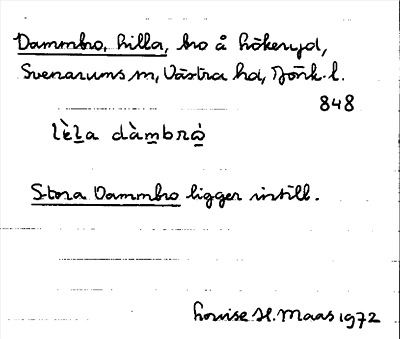 Dammbro, Lilla, bro å Hökeryd,
Svenarums sn, Västra hd, Jönk. l.
848
lèl̲a dàm̲brɷ̲̀
Stora Dammbro ligger intill.
Louise H. Maas 1972